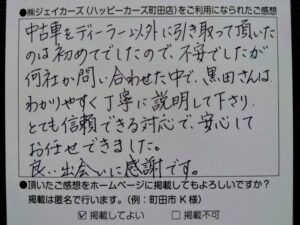 ●㈱ジェイカーズ(ハッピーカーズ町田店)をご利用になられたご感想
中古車をディーラー以外に引き取って頂いた
のは初めてでしたので、不安でしたが
何社か問い合わせた中で、黒田さんは
わかりやすく丁寧に説明して下さり、
とても信頼できる対応で、安心して
お任せできました。
良い出会いに感謝です。
●頂いたご感想をホームページに掲載してもよろしいですか?
掲載は匿名で行います。(例:町田市K様)
☑掲載してよい □掲載不可